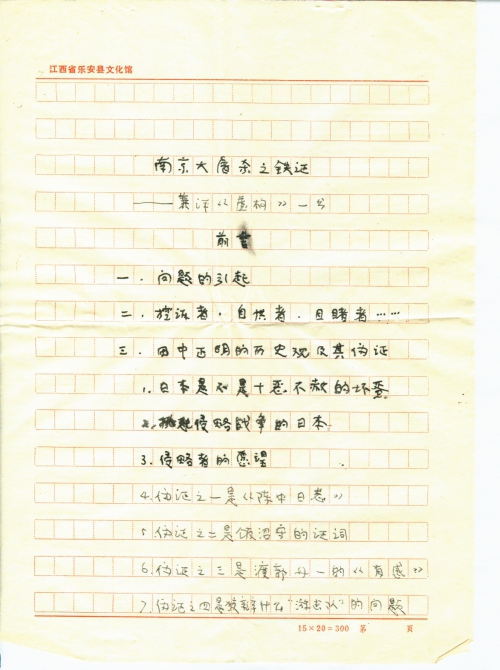 江西省乐安县文化馆
南京大屠杀之铁证
——兼评《虚构》一书
前言
一.问题的引起
二.控诉者,自供者,目睹者……
三.田中正明的历史观及其伪证
1.日本是不是十恶不赦的坏蛋
2.侵略战争的日本
3.侵略者的愿望
4.伪证之一是《阵中日志》
5.伪证之二是饭沼守的证词
6.伪证之三是渡部升一的《有感》
7.伪证之四是 什么"游击队"的问题
15×20=300 第 页